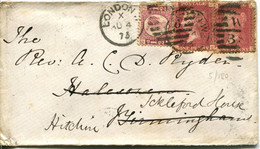 LONDON
X
AU 4
73
The
Rev: A. C. D. Ryder
Halesowen
Ickleford House
Hitchin Birmingham